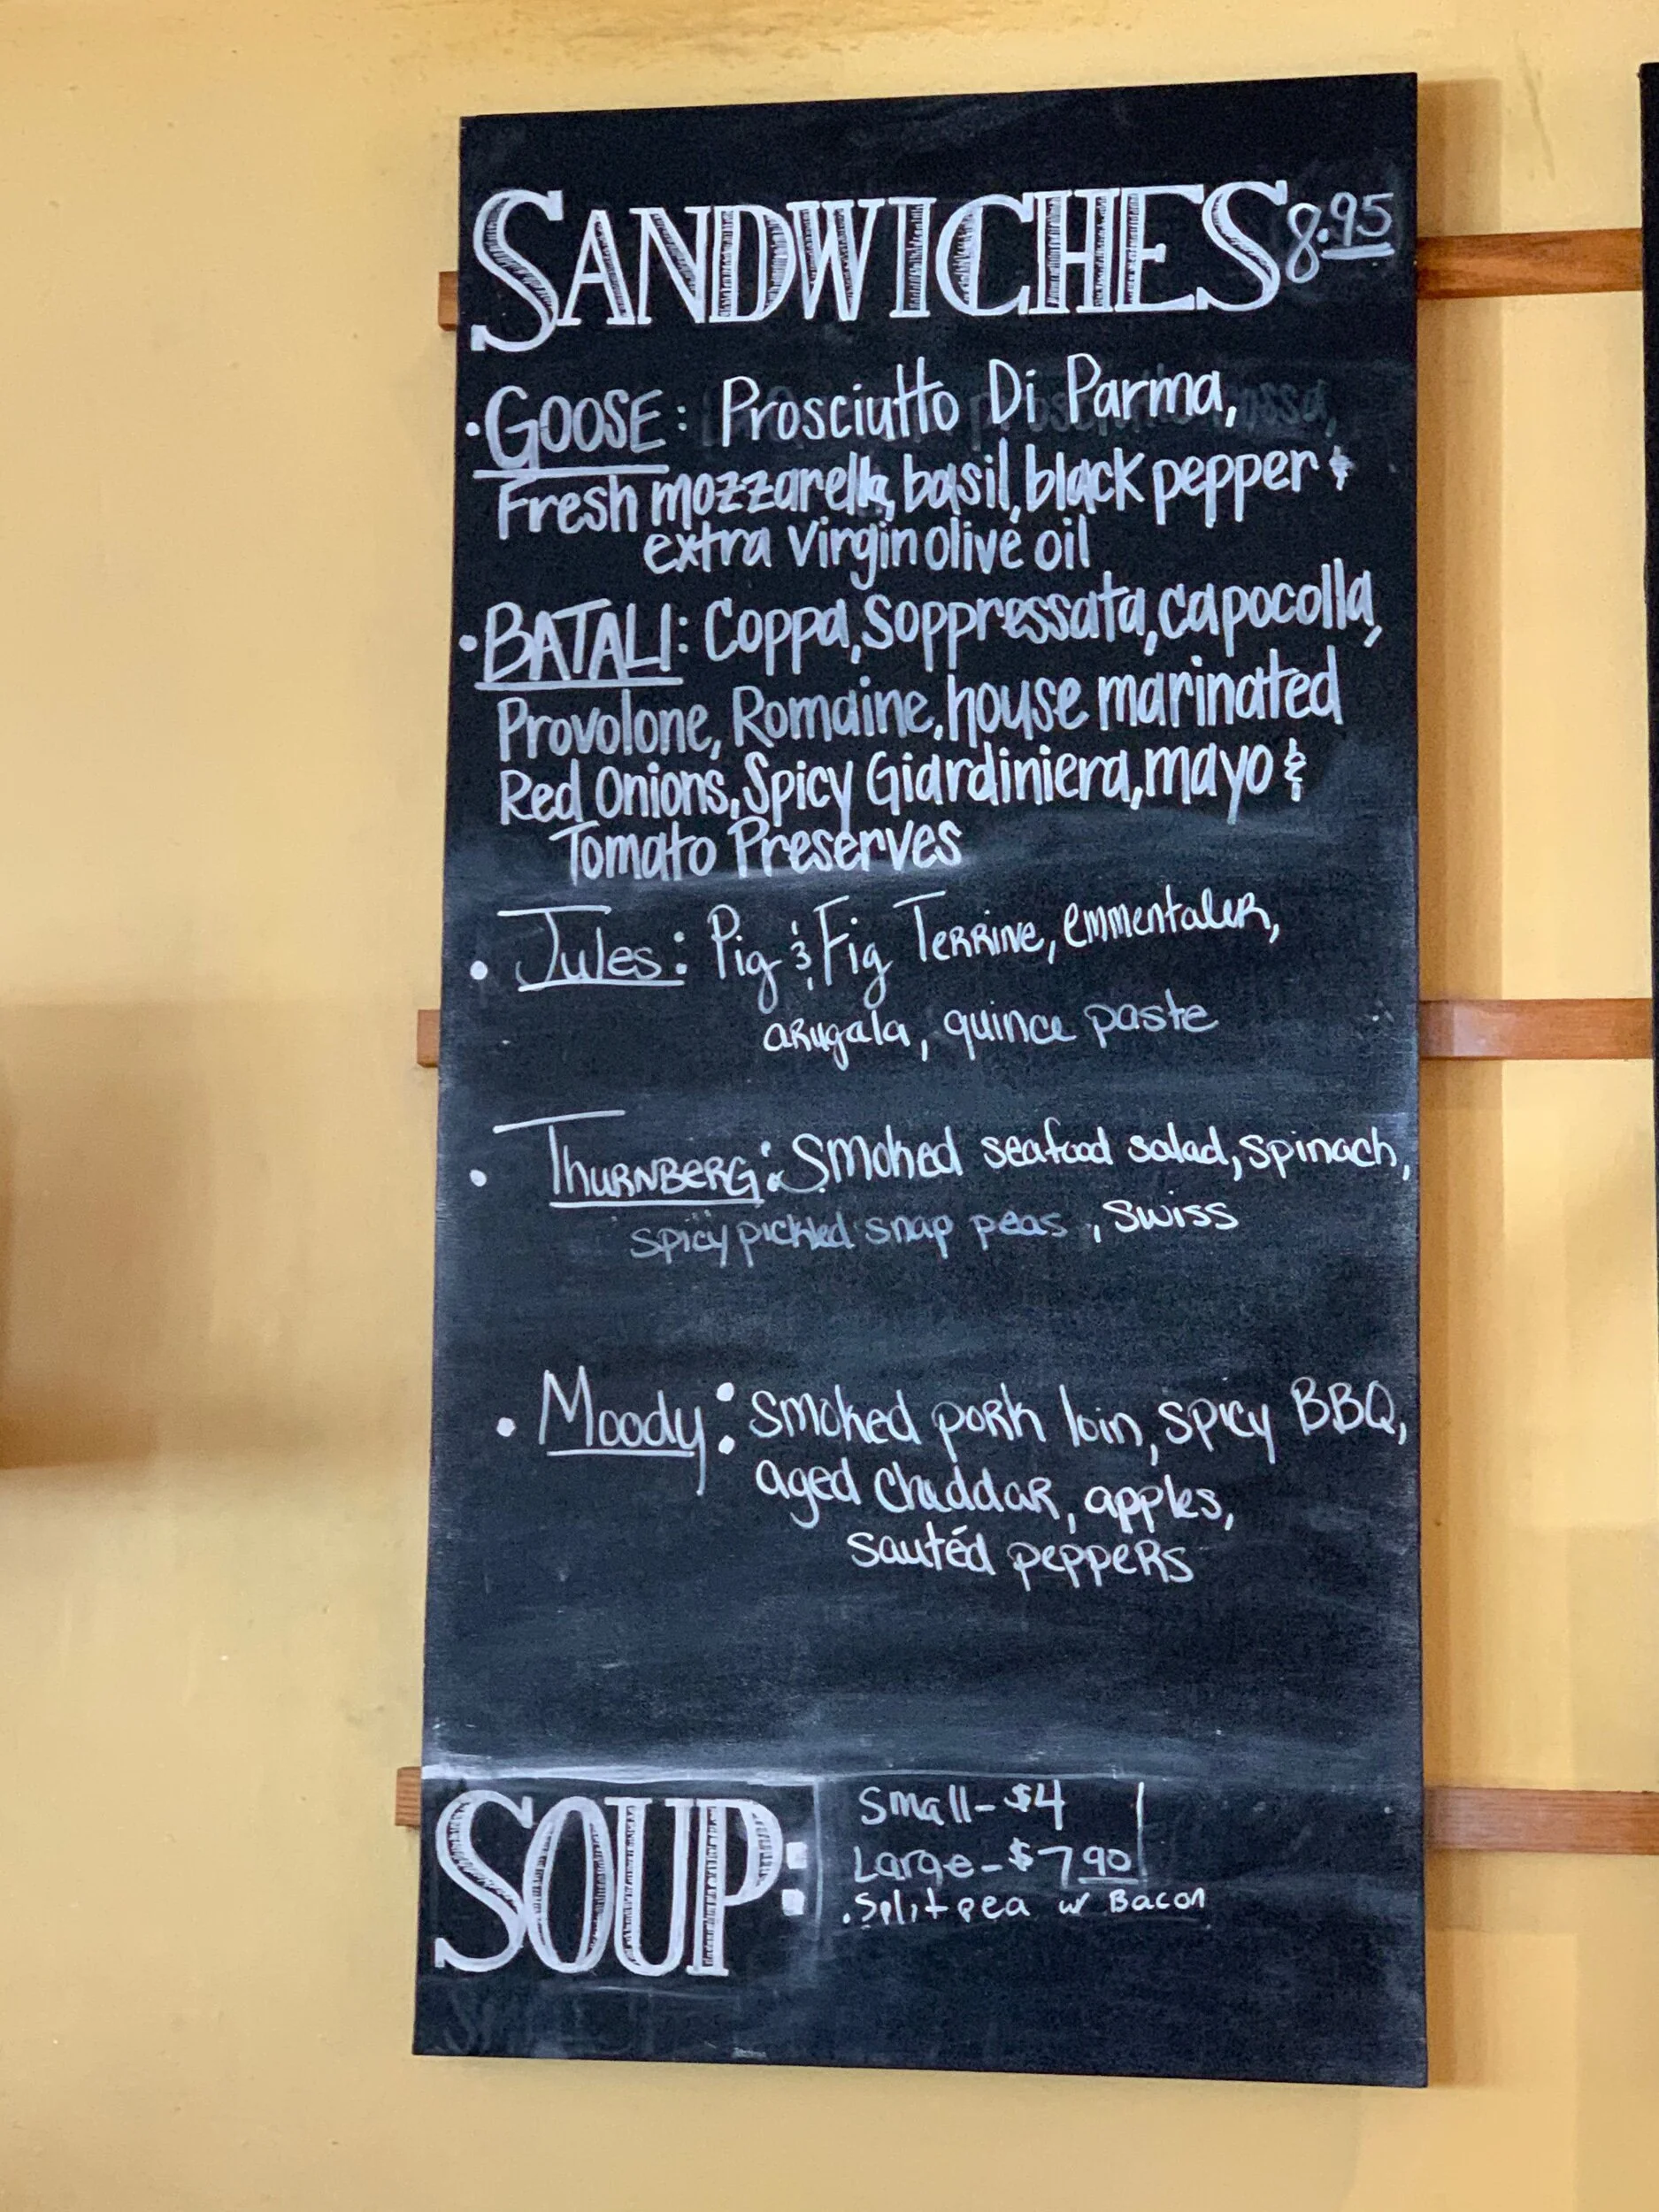 SANDWICHES 8.95
• GOOSE: Prosciutto Di Parma,
Fresh mozzarella, basil, black pepper &
extra Virgin olive oil
• BATALI: Coppa, Soppressata, capocolla,
Provolone, Romaine, house marinated
Red Onions, Spicy Giardiniera, mayo &
Tomato Preserves
• Jules: Pig & Fig Terrine, emmentaler,
arugala, quince paste
• Thurnberg: Smoked seafood salad, spinach,
spicy pickled snap peas, swiss
• Moody: smoked pork loin, spicy BBQ,
aged cheddar, apples,
sautéd peppers
SOUP:
Small - $4
Large - $7.90
• Split pea w/ Bacon